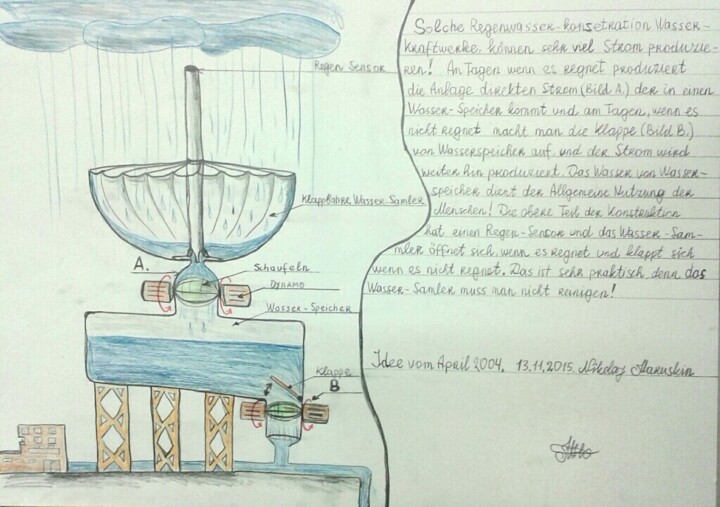 Regen Sensor
Klappbahre Wasser-Samler
A.
Schaufeln
Dynamo
Wasser-Speicher
Klappe
B
Solche Regenwasser-konsetration Wasser-
kraftwerke, können sehr viel Strom produzie-
ren! An Tagen wenn es regnet produziert
die Anlage direkten Strom (Bild A.) der in einen
Wasser-Speicher kommt und am Tagen, wenn es
nicht regnet macht man die Klappe (Bild B.)
von Wasserspeicher auf, und der Strom wird
weiter hin produziert. Das Wasser von Wasser-
speicher dient der Allgemeine Nutzung der
Menschen! Die obere Teil der Konstruktion
hat einen Regen-Sensor und das Wasser-Sam-
mler öffnet sich, wenn es regnet und klappt sich
wenn es nicht regnet. Das ist sehr praktisch, denn das
Wasser-Samler muss man nicht reinigen!
Idee vom April 2004. 13.11.2015. Nikolaj